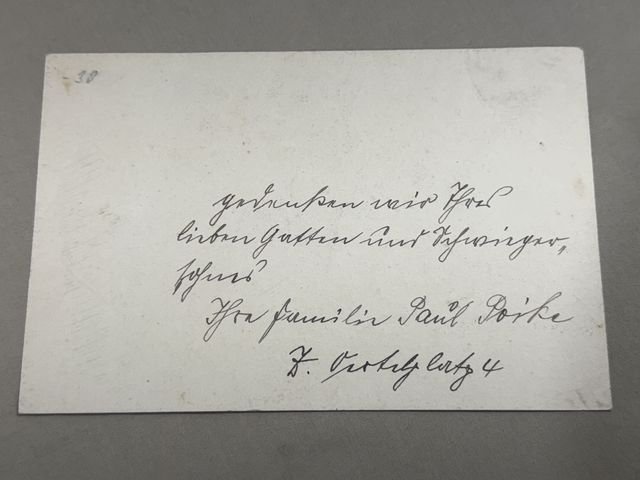 38
gedenken wir Ihres
lieben Gatten und Schwieger„
sohnes
Ihre Familie Paul
Oertelplatz 4